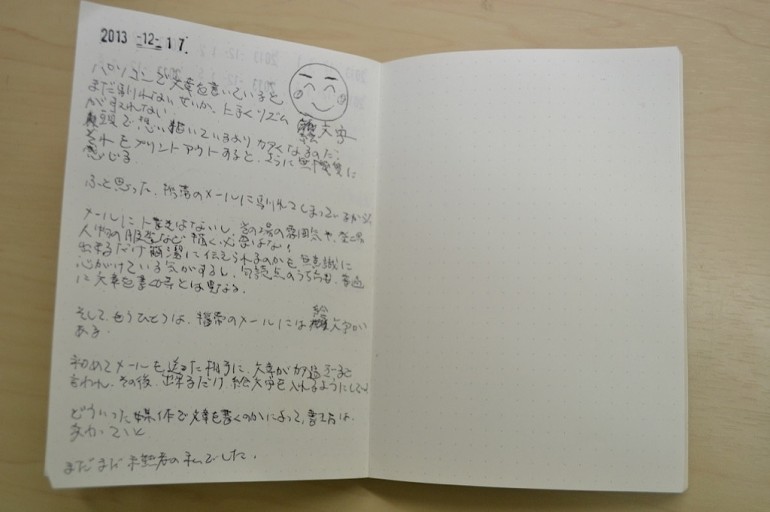 2013 -12- 17.
パソコンで文章を書いていると
まだ馴れないせいか、上手くリズム
が取れない。
頭で思い描いているより カタくなるのだ。
それをプリントアウトすると、さらに無機質に
感じる。
絵文字
ふと思った、携帯のメールに馴れてしまっているから
メールに下書きはないし、その場の雰囲気や、登場
人物の服装など 描く必要はない。
出来るだけ簡潔に伝えられるのかを無意識に
心がけている気がするし、句読点のうち方も、普通
に文章を書く時とは異なる。
そして、もうひとつは、携帯のメールには絵文字が
ある。
初めてメールを送った相手に、文章がカタ過ぎると
言われ、その後、出来るだけ 絵文字を入れるようにして
どういった媒体で文章を書くのかによって、書き方は
まだまだ未熟者の私でした。